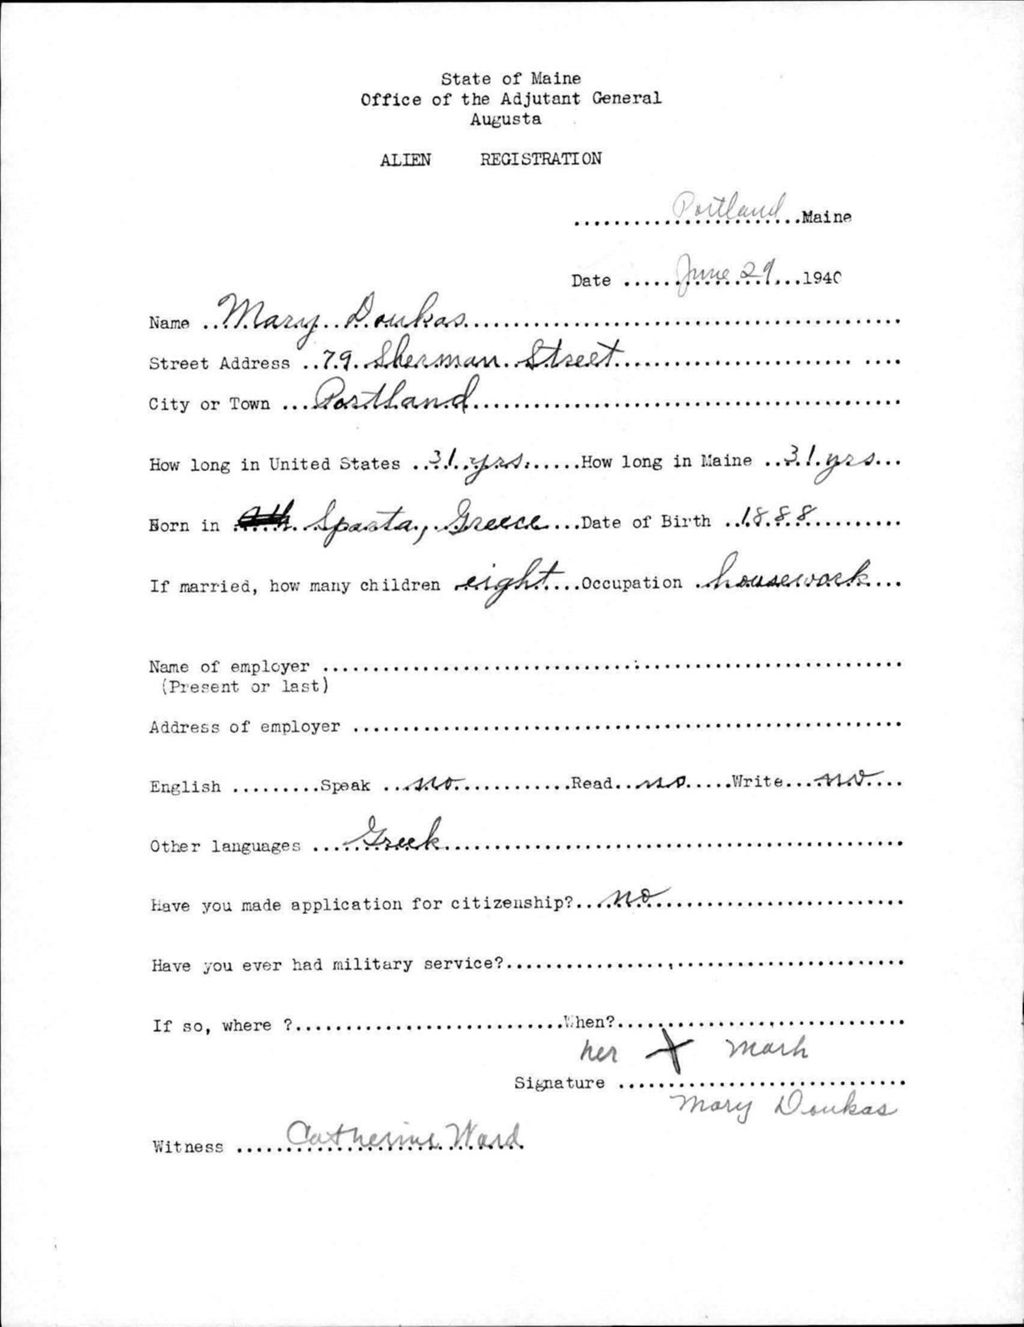 State of Maine
Office of the Adjutant General
Augusta
ALIEN REGISTRATION
..........Portland..Maine
Date ......June 29...1940
Name ..Mary Doukas..........
Street Address ..79 Sherman Street..........
City or Town ...Portland..........
How long in United States ..31 yrs.......How long in Maine ..31 yrs...
Born in Sparta, Greece...Date of Birth ..1888..........
If married, how many children eight....Occupation .housework...
Name of employer ..........
(Present or last)
Address of employer ..........
English .........Speak ...no............Read..no.....Write...no....
Other languages ....Greek..........
Have you made application for citizenship?...no..........
Have you ever had military service?..........
If so, where ?..........When?..........
her X mark
Signature ..........
Mary Doukas
Witness .....Catherine Ward